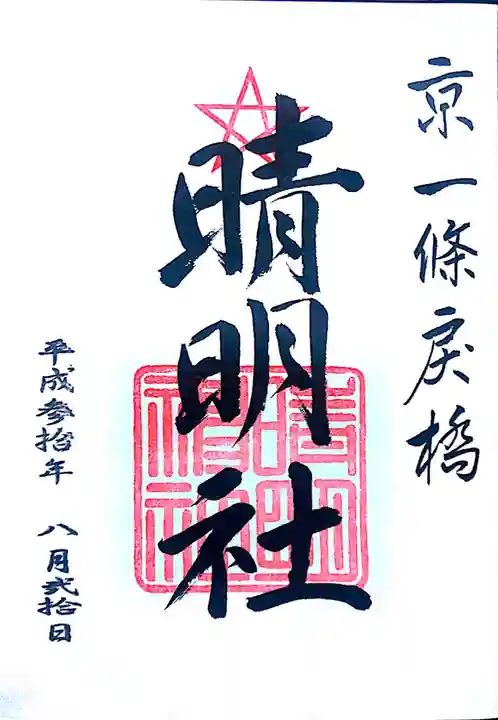 京一條戻橋
晴明社
平成参拾年 八月弐拾日